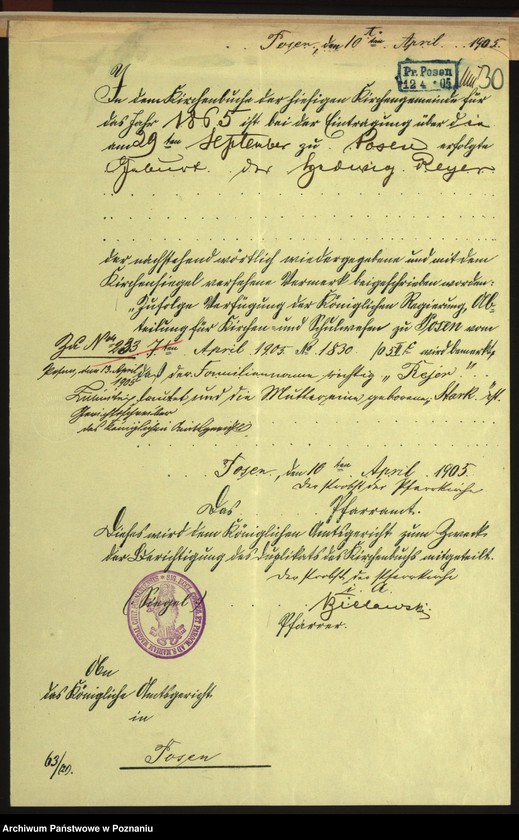 Posen, den 10ten April 1905.
Pr. Posen
12 4 05
30
In dem Kirchenbuche der hiesigen Kirchengemeinde für
das Jahr 1865 ist bei der Eintragung über die
am 29ten September zu Posen erfolgte
Geburt der Hedwig Reyer
der nachstehend wörtlich wiedergegebene und mit dem
Kirchensiegel versehene Vermerk beigeschrieben worden:
„Zufolge Verfügung der Königlichen Regierung, Ab-
teilung für Kirchen- und Schulwesen zu Posen vom
7ten April 1905 No 1830/05 wird bemerkt,
daß der Familienname richtig „Rejor"
lautet und die Mutter eine geborene Stark ist.
Zu No 233
Posen, den 13. April
1905
Gerichtsschreiber
des Königlichen Amtsgerichts
Posen, den 10ten April 1905
Der Probst der Pfarrkirche
Das Pfarramt.
Dieses wird dem Königlichen Amtsgericht zum Zweck
der Berichtigung des Duplikats des Kirchenbuchs mitgeteilt.
Der Probst der Pfarrkirche
i. A.
(Siegel)
Pfarrer.
An
das Königliche Amtsgericht
in
Posen
63/
Archiwum Państwowe w Poznaniu